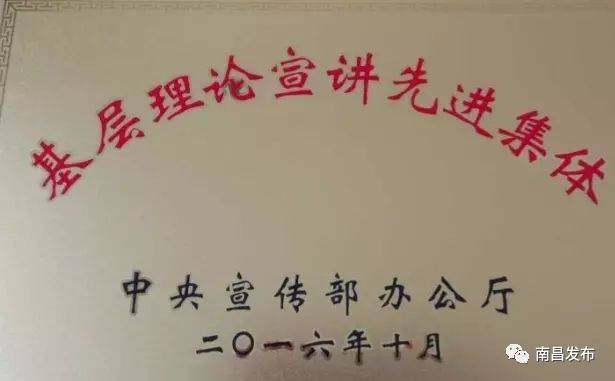 基层理论宣讲先进集体
中央宣传部办公厅
二〇一六年十月
南昌发布